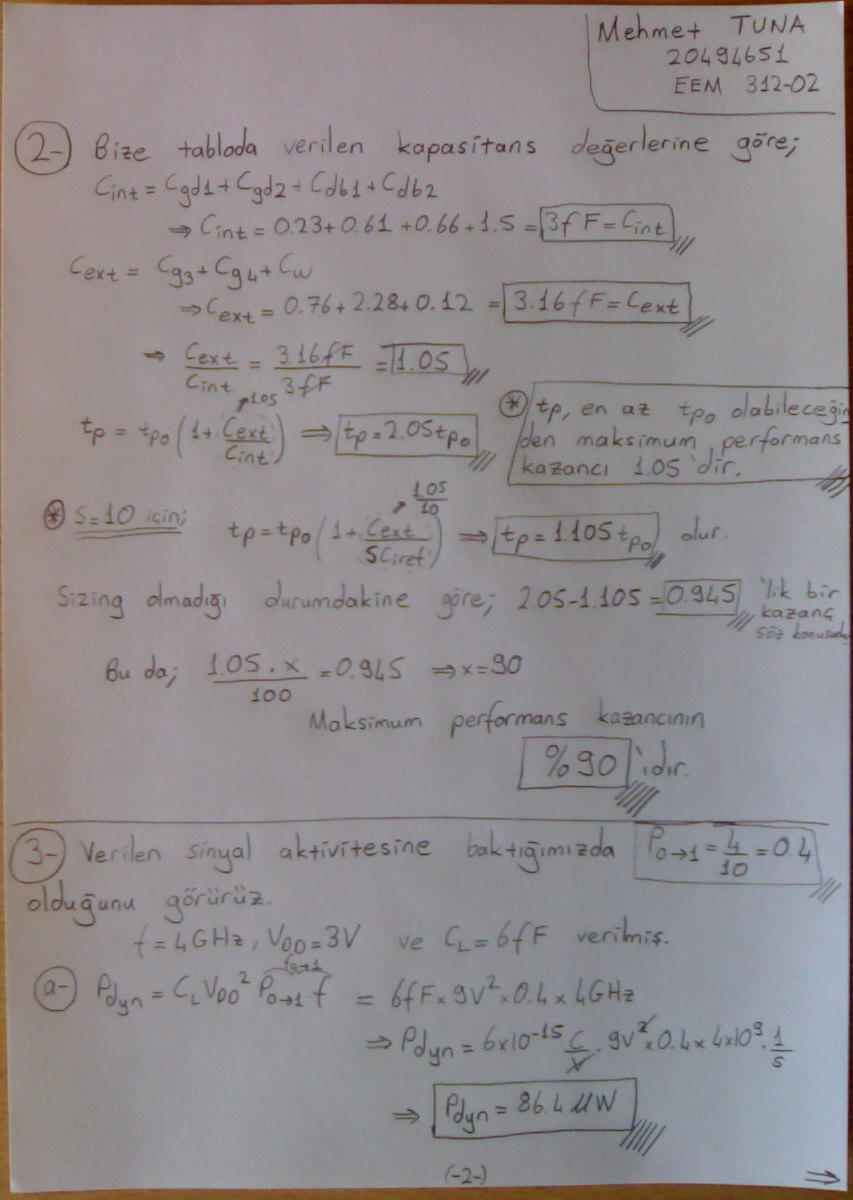 Mehmet TUNA
20494651
EEM 312-02
2-) Bize tabloda verilen kapasitans değerlerine göre;
Cint = Cgd1 + Cgd2 + Cdb1 + Cdb2
⇒ Cint = 0.23 + 0.61 + 0.66 + 1.5 = 3fF = Cint
Cext = Cg3 + Cg4 + Cw
⇒ Cext = 0.76 + 2.28 + 0.12 = 3.16fF = Cext
⇒ Cext/Cint = 3.16fF/3fF = 1.05
tp = tp0 (1 + Cext/Cint) ↗1.05 ⇒ tp = 2.05tp0
* tp, en az tp0 olabileceğin
den maksimum performans
kazancı 1.05 'dir.
* S=10 için; tp = tp0 (1 + Cext/SCiref) ↗1.05/10 ⇒ tp = 1.105tp0 dur.
Sizing olmadığı durumdakine göre; 2.05-1.105 = 0.945 'lik bir
kazanç
söz konusudur
Bu da; 1.05 . x/100 = 0.945 ⇒ x = 90
Maksimum performans kazancının
%90 'ıdır.
3-) Verilen sinyal aktivitesine baktığımızda P0→1 = 4/10 = 0.4
olduğunu görürüz.
f = 4GHz, VDD = 3V ve CL = 6fF verilmiş.
a-) Pdyn = CL VDD² P0→1 f (f0→1) = 6fF x 9V² x 0.4 x 4GHz
⇒ Pdyn = 6x10⁻¹⁵ C/V . 9V² x 0.4 x 4x10⁹ . 1/s
⇒ Pdyn = 86.4 µW
(-2-) ⇒